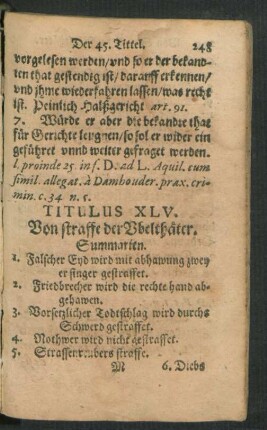 Der 45. Tittel. 248
vorgelesen werden/vnd so er der bekand-
ten that gestendig ist/darauff erkennen/
vnd jhme wiederfahren lassen/was recht
ist. Peinlich Halßgericht art. 91.
7. Würde er aber die bekandte that
für Gerichte leugnen/so sol er wider ein
geführet vnnd weiter gefraget werden.
l. proinde 25. in f. D. ad L. Aquil. cum
simil. allegat. à Damhouder. prax. cri-
min. c. 34 n. 5.
TITULUS XLV.
Von straffe der Vbelthäter.
Summarien.
1. Falscher Eyd wird mit abhawung zwey
er finger gestraffet.
2. Friedbrecher wird die rechte hand ab-
gehawen.
3. Vorsetzlicher Todtschlag wird durchs
Schwerd gestraffet.
4. Nothwer wird nicht gestraffet.
5. Strassenreubers straffe.
M 6. Diebs